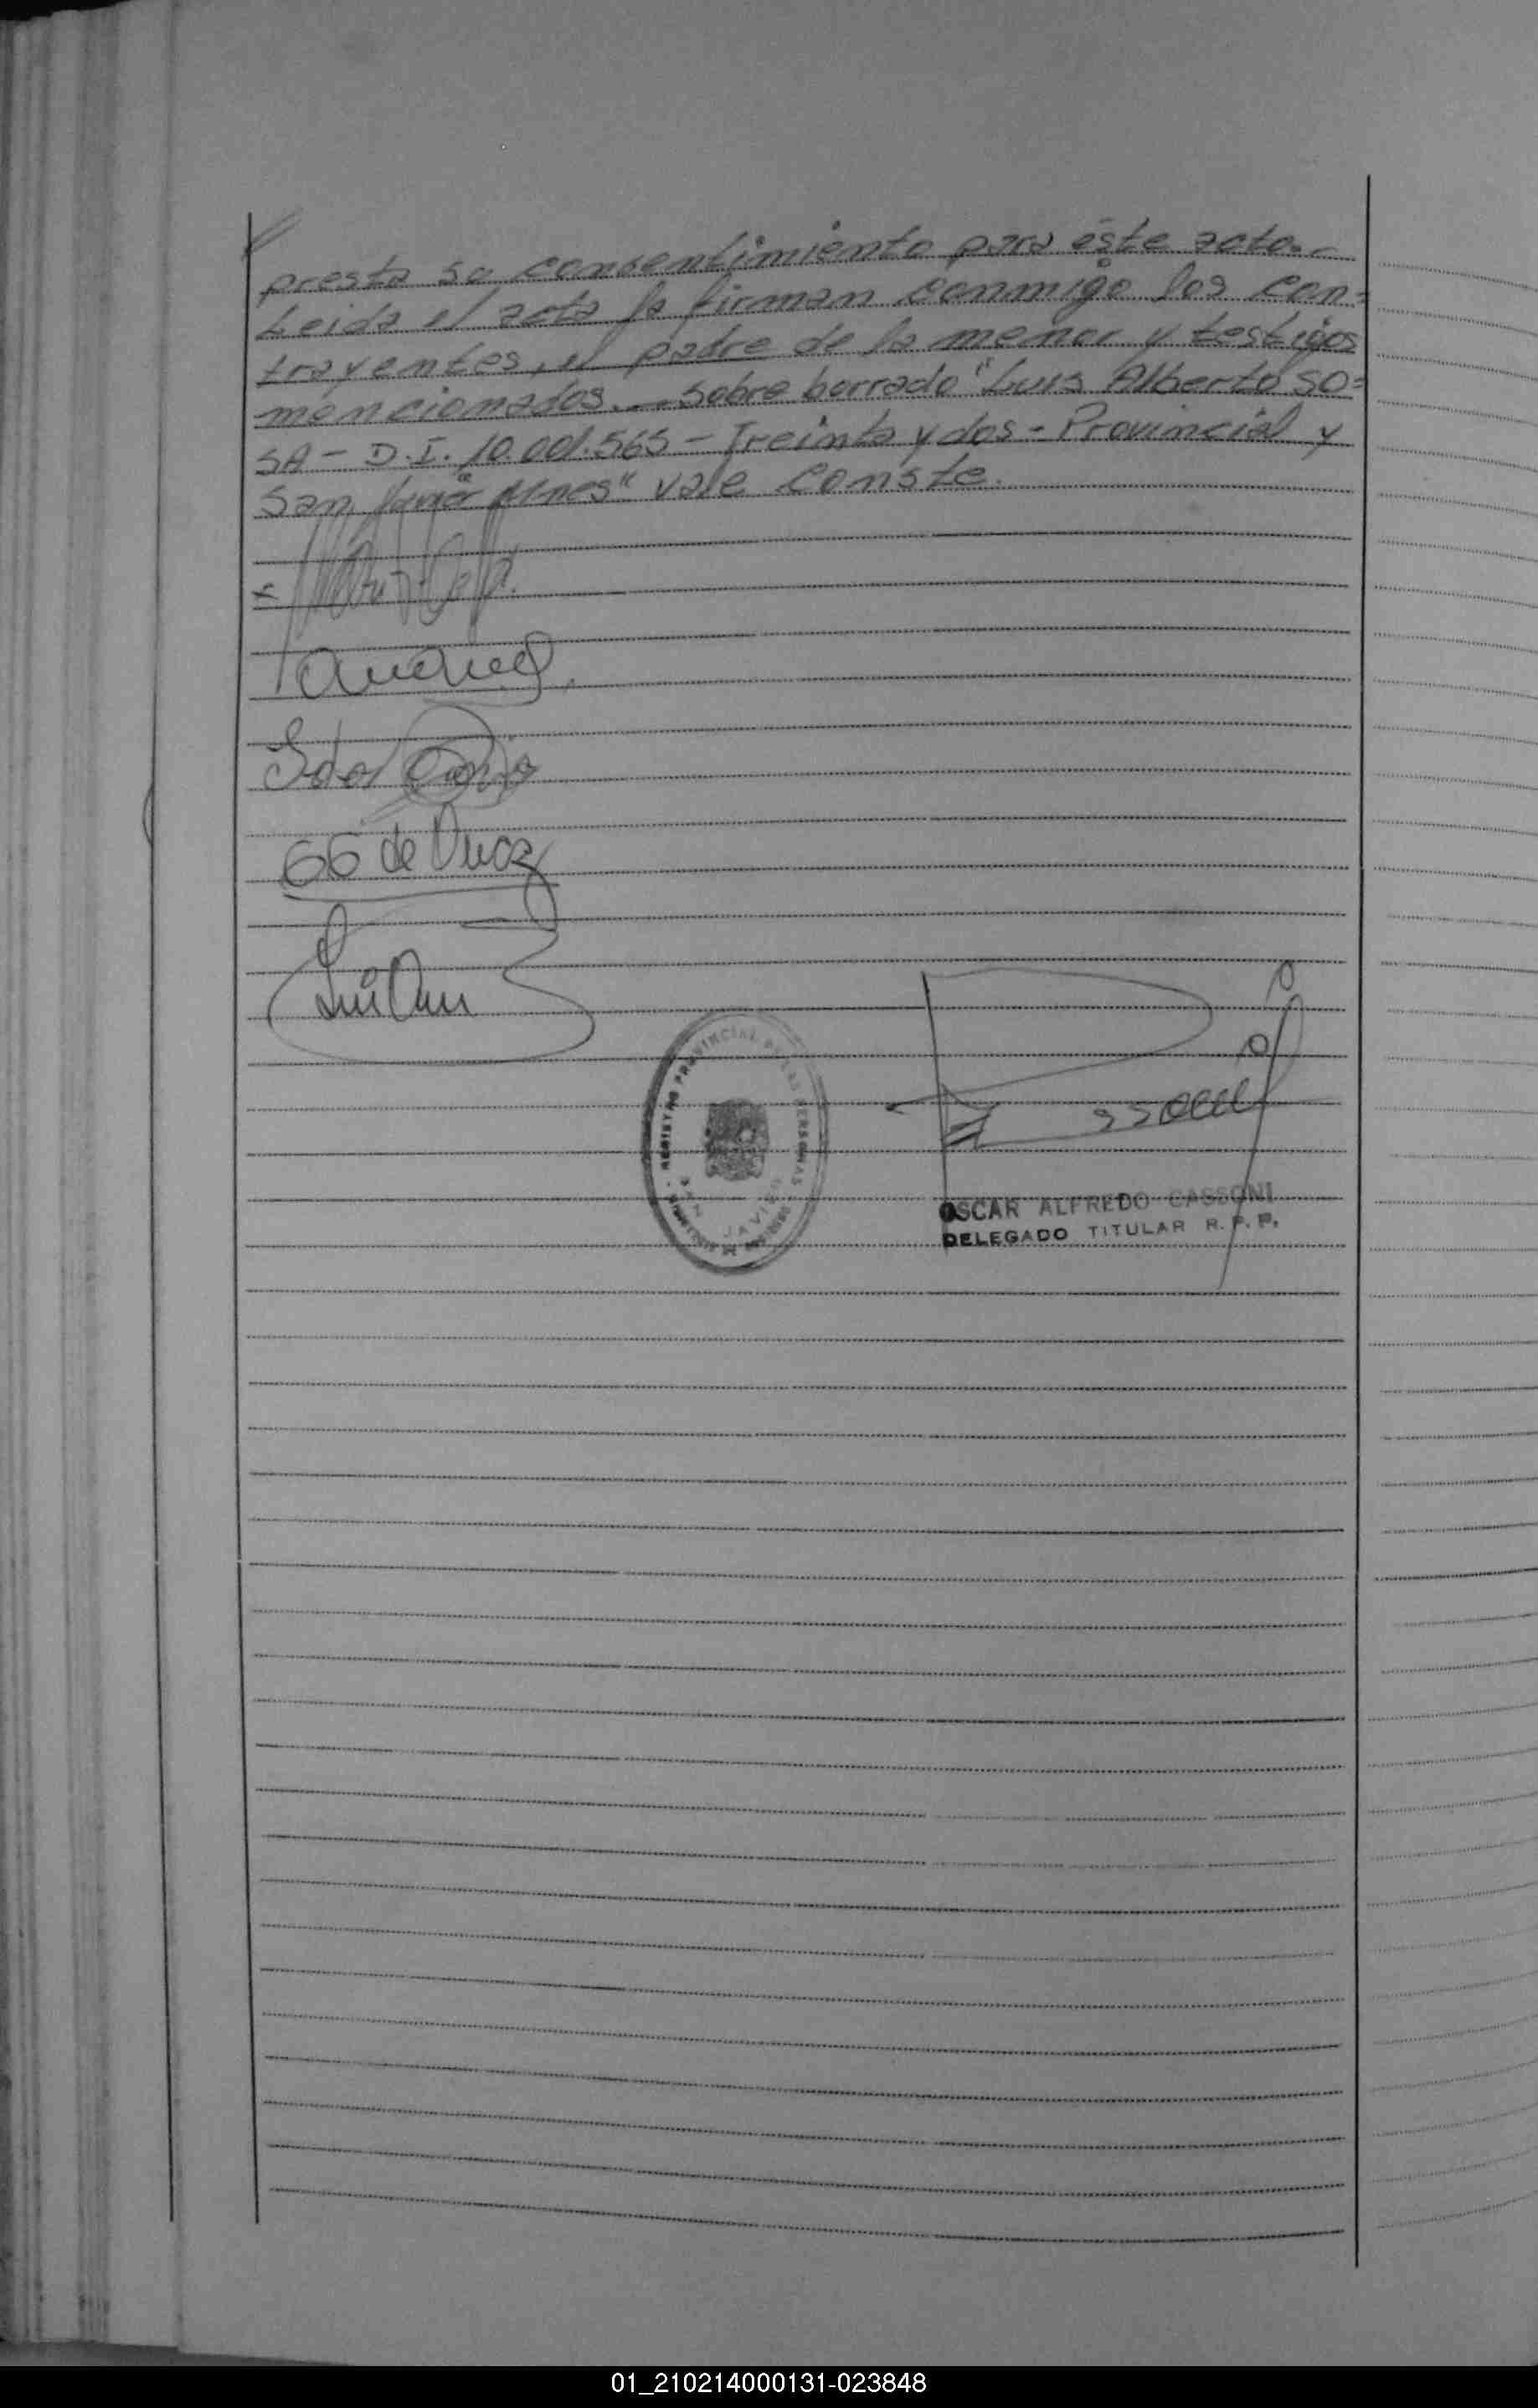 presta su consentimiento para éste acto.-
Leida el acta la firman conmigo los con=
trayentes, el padre de la menor y testigos
mencionados.— Sobre borrado "Luis Alberto SO=
SA - D.I. 10.001.565 - Treinta y dos - Provincial y
San Javier Mnes" vale conste.
66 de
REGISTRO PROVINCIAL DE LAS PERSONAS
SAN JAVIER
OSCAR ALFREDO CASSONI
DELEGADO TITULAR R. P. P.
01_210214000131-023848